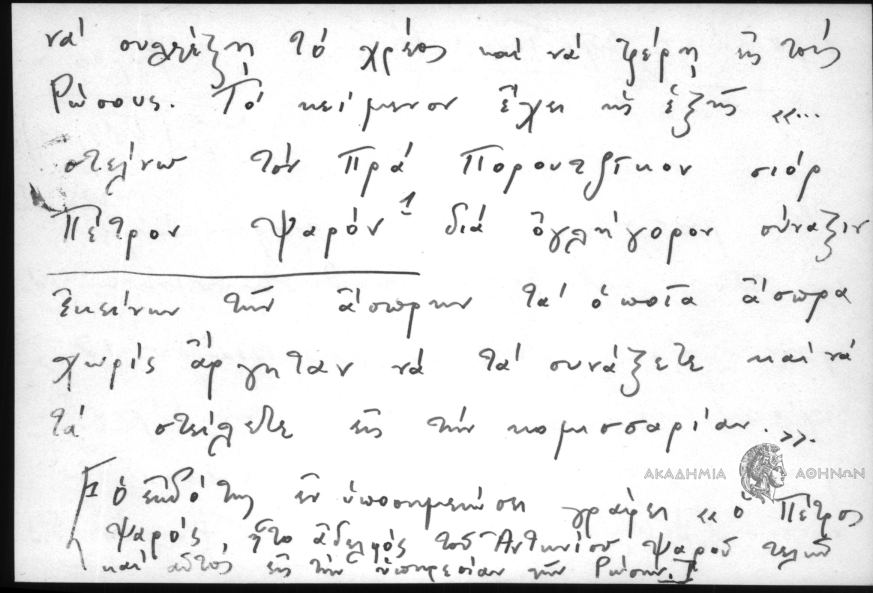 νά συλλέξη τό χρέος καί νά φέρη εἰς τούς
Ρώσους. Τό κείμενον ἔχει ὡς ἑξῆς «...
στέλνω τόν Πρά Πορουτζικον σιόρ
Πέτρον Ψαρόν 1 διά ὀγλήγορον σύναξιν
ἐκείνων τῶν ἄσπρων τά ὁποῖα ἄσπρα
χωρίς ἄργηταν νά τά συνάξετε καί νά
τά στείλετε εἰς τήν κομισσαρίαν.».
ΑΚΑΔΗΜΙΑ ΑΘΗΝΩΝ
[1 ὁ ἐκδότης ἐν ὑποσημειώσει γράφει «ὁ Πέτρος
Ψαρός, ἦτο ἀδελφός τοῦ Ἀντωνίου Ψαροῦ τελῶν
καί αὐτός εἰς τήν ὑπηρεσίαν τῶν Ρώσων.]